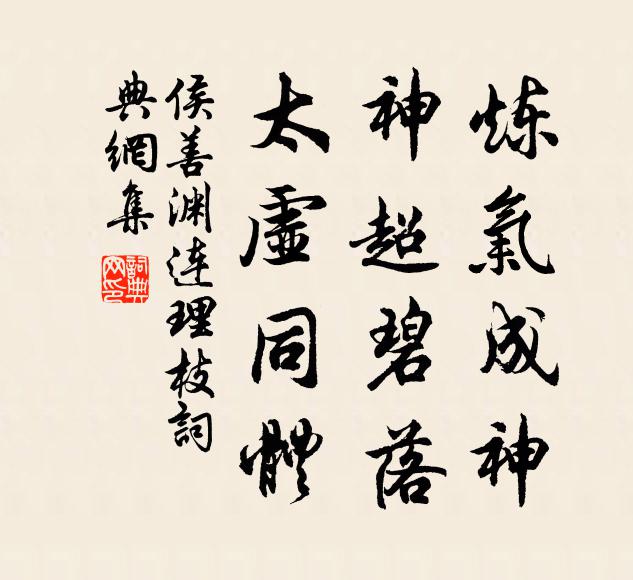 炼氣成神
神超碧落
太虛同體
侯善渊连理枝詞
典網集
詞典网印